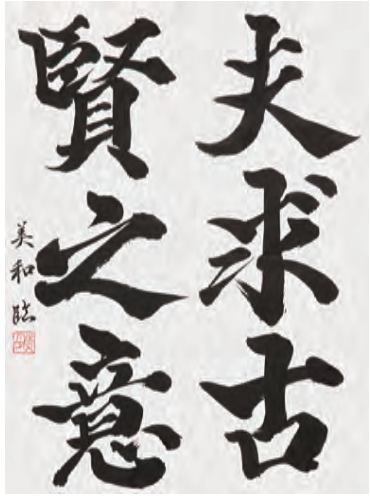 夫求古
賢之意
美和臨